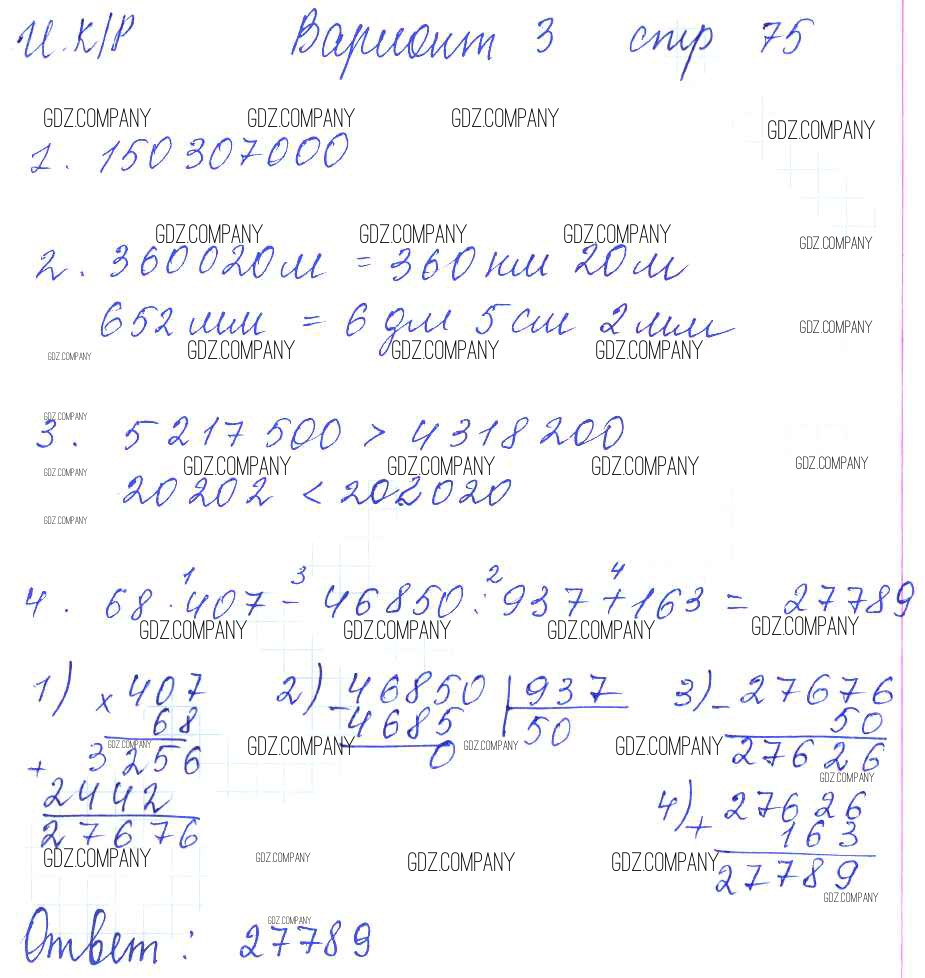 И.К/Р Вариант 3 стр 75
GDZ.COMPANY GDZ.COMPANY GDZ.COMPANY GDZ.COMPANY
1. 150 307000
GDZ.COMPANY GDZ.COMPANY GDZ.COMPANY GDZ.COMPANY
2. 360 020 м = 360 км 20 м
652 мм = 6 дм 5 см 2 мм GDZ.COMPANY
GDZ.COMPANY GDZ.COMPANY GDZ.COMPANY GDZ.COMPANY
GDZ.COMPANY
3. 5 217 500 > 4 318 200
GDZ.COMPANY GDZ.COMPANY GDZ.COMPANY GDZ.COMPANY GDZ.COMPANY
20 202 < 202 020
GDZ.COMPANY
1 3 2 4
4. 68 · 407 - 46850 : 937 + 163 = 27789
GDZ.COMPANY GDZ.COMPANY GDZ.COMPANY GDZ.COMPANY
1) × 407 2) - 46850 937 3) - 27676
68 4685 50 50
GDZ.COMPANY GDZ.COMPANY GDZ.COMPANY GDZ.COMPANY
+ 3256 0 27626
GDZ.COMPANY
2442 4) + 27626
27676 163
GDZ.COMPANY GDZ.COMPANY GDZ.COMPANY GDZ.COMPANY
27789
GDZ.COMPANY
GDZ.COMPANY
Ответ: 27789